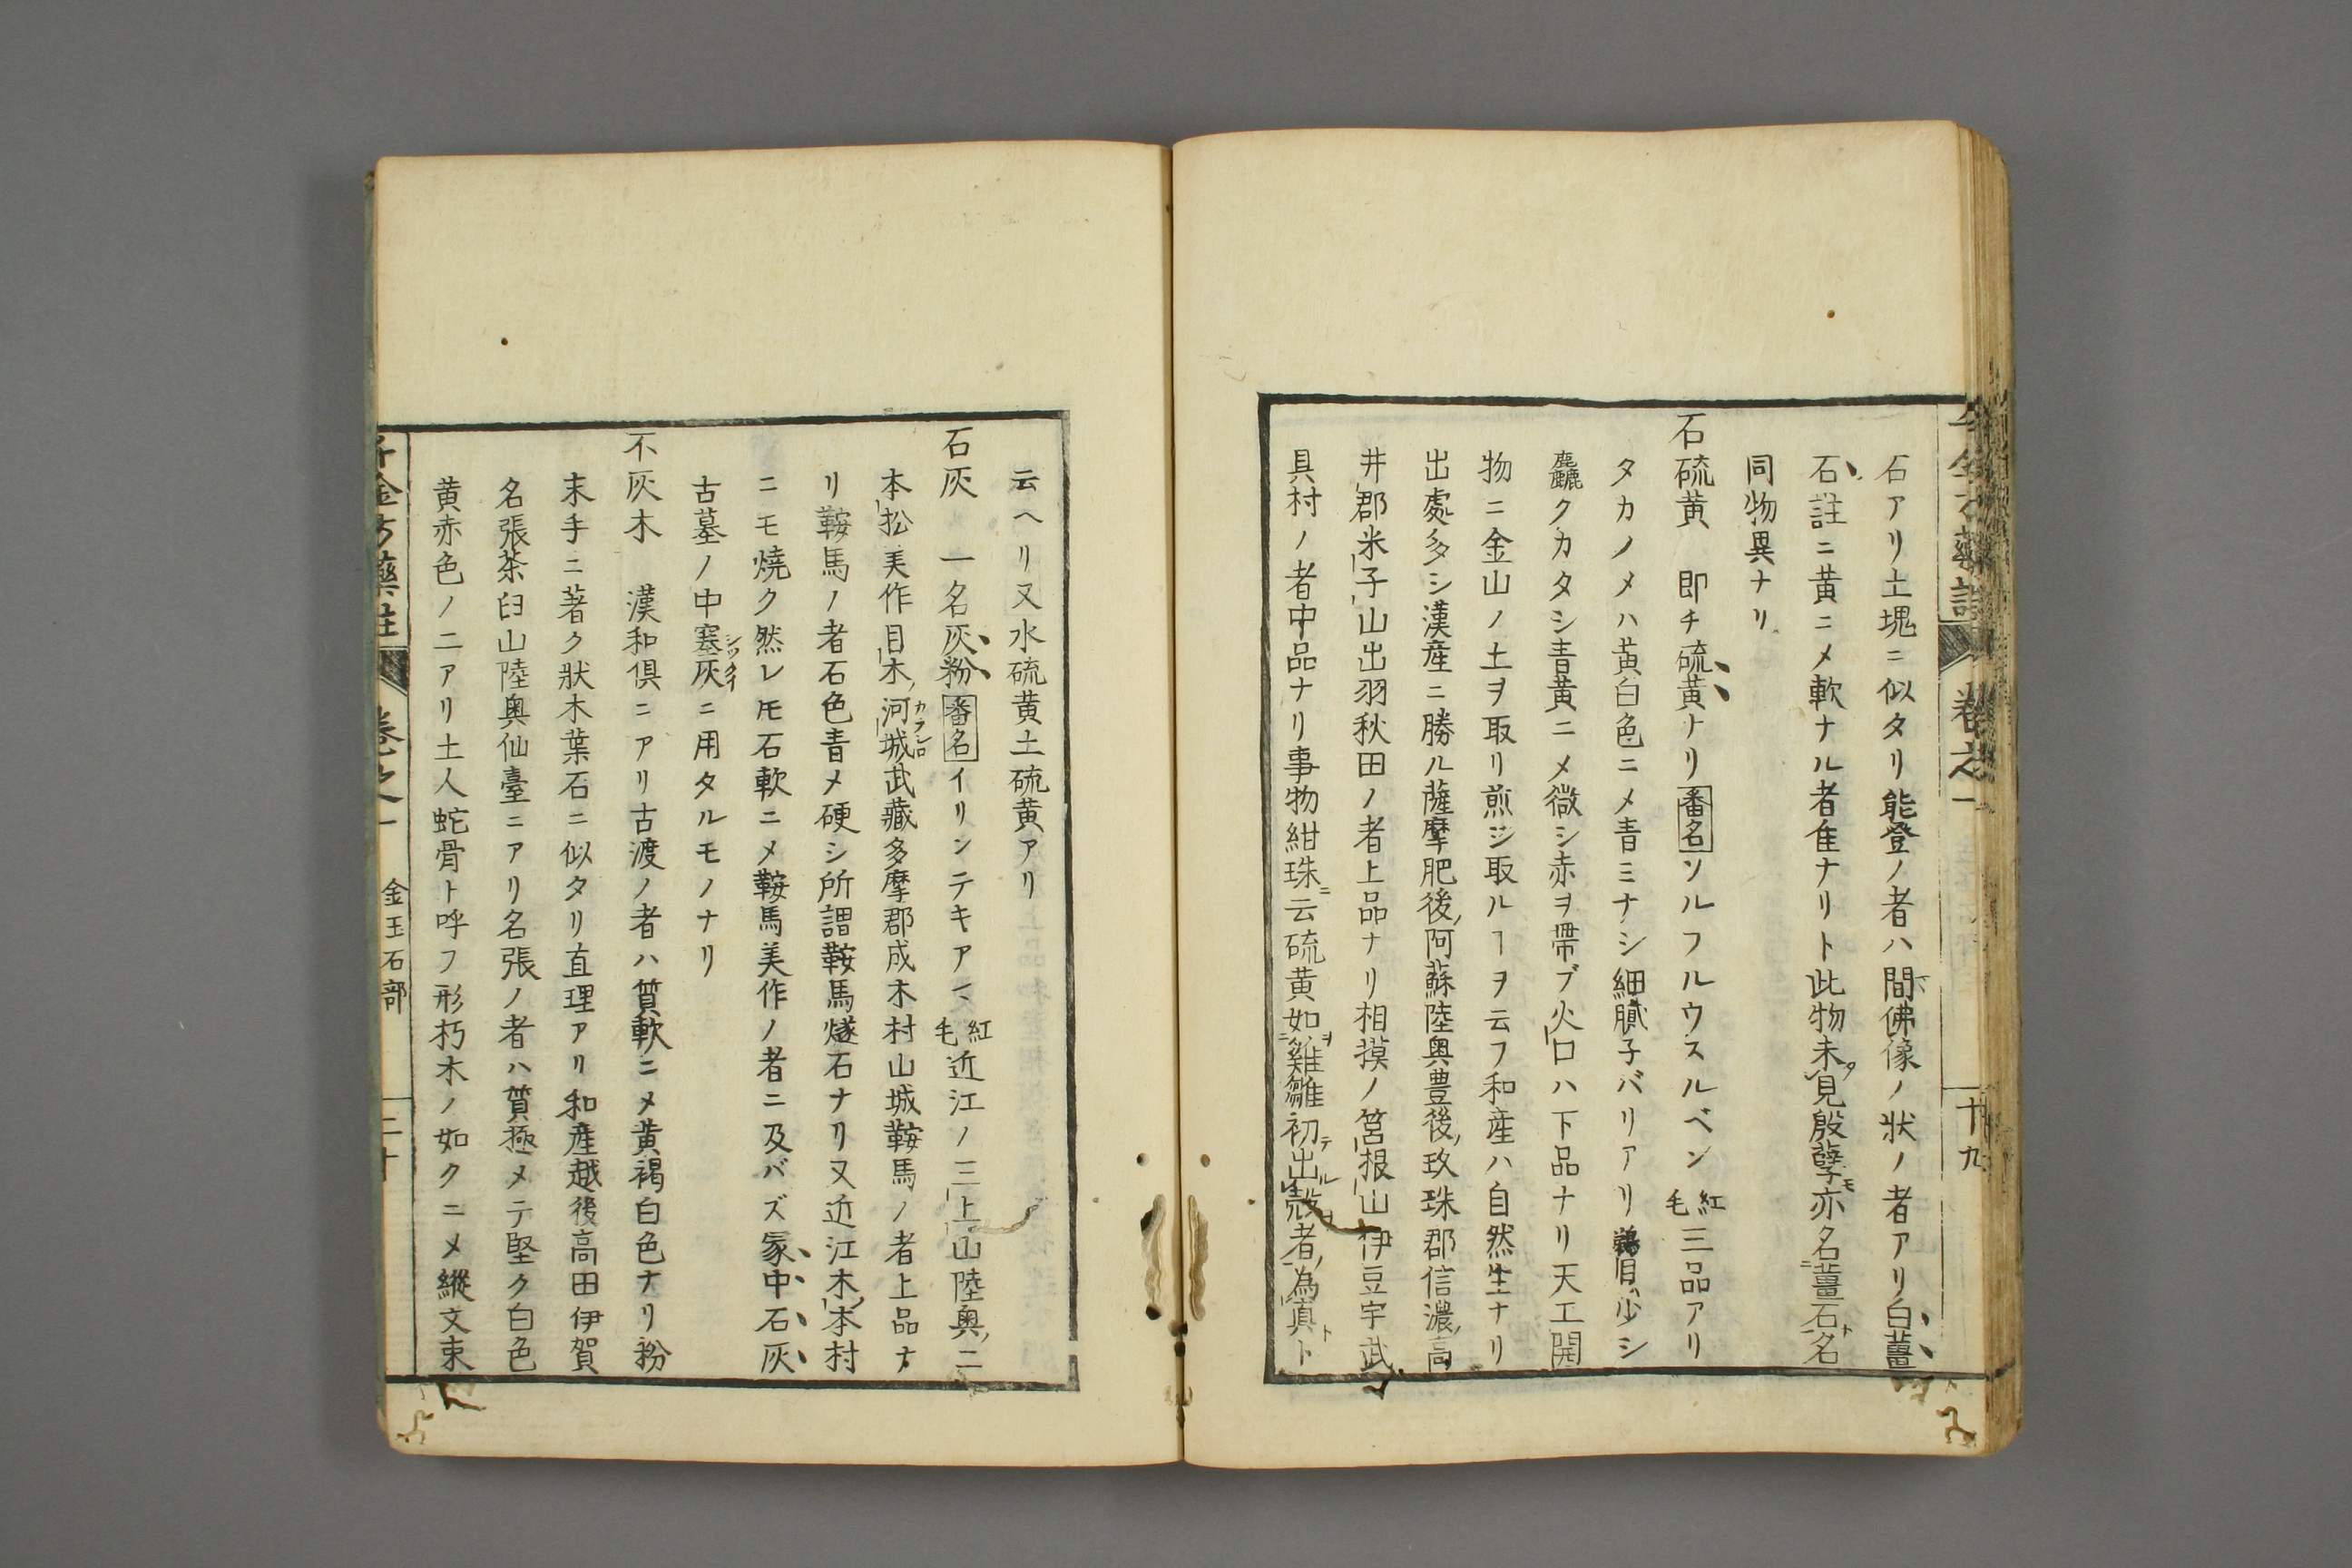 千金方藥註 卷之一 十九
石アリ土塊ニ似タリ能登ノ者ハ間佛像ノ狀ノ者アリ白薑
石註ニ黄ニメ軟ナル者隹ナリト此物未見殷孽亦名薑石名
同物異ナリ
石硫黄 即チ硫黄ナリ番名ソルフルウスルベン紅毛三品アリ
タカノメハ黄白色ニメ青ミナシ細膩子バリアリ鵜目少シ
麤クカタシ青黄ニメ微シ赤ヲ帶ブ火口ハ下品ナリ天工開
物ニ金山ノ土ヲ取リ煎ジ取ルヿヲ云フ和産ハ自然生ナリ
出處多シ漢産ニ勝ル薩摩肥後阿蘇陸奥豊後玖珠郡信濃高
井郡米子山出羽秋田ノ者上品ナリ相摸ノ筥根山伊豆宇武
具村ノ者中品ナリ事物紺珠ニ云硫黄如雞雛初出殼者為真ト
云ヘリ又水硫黄土硫黄アリ
石灰 一名灰粉番名イリンテキアヽ紅毛近江ノ三上山陸奥二
本松美作目木河城カアシロ武藏多摩郡成木村山城鞍馬ノ者上品ナ
リ鞍馬ノ者石色青メ硬シ所謂鞍馬燧石ナリ又近江木本村
ニモ燒ク然レ𪜈石軟ニメ鞍馬美作ノ者ニ及バズ冢中石灰
古墓ノ中塞灰シックイニ用タルモノナリ
不灰木 漢和倶ニアリ古渡ノ者ハ質軟ニメ黄褐白色ナリ粉
末手ニ著ク狀木葉石ニ似タリ直理アリ和産越後高田伊賀
名張茶臼山陸奥仙臺ニアリ名張ノ者ハ質極メテ堅ク白色
黄赤色ノ二アリ土人蛇骨ト呼フ形朽木ノ如クニメ縱文束
千金方藥註 卷之一 金玉石部 二十